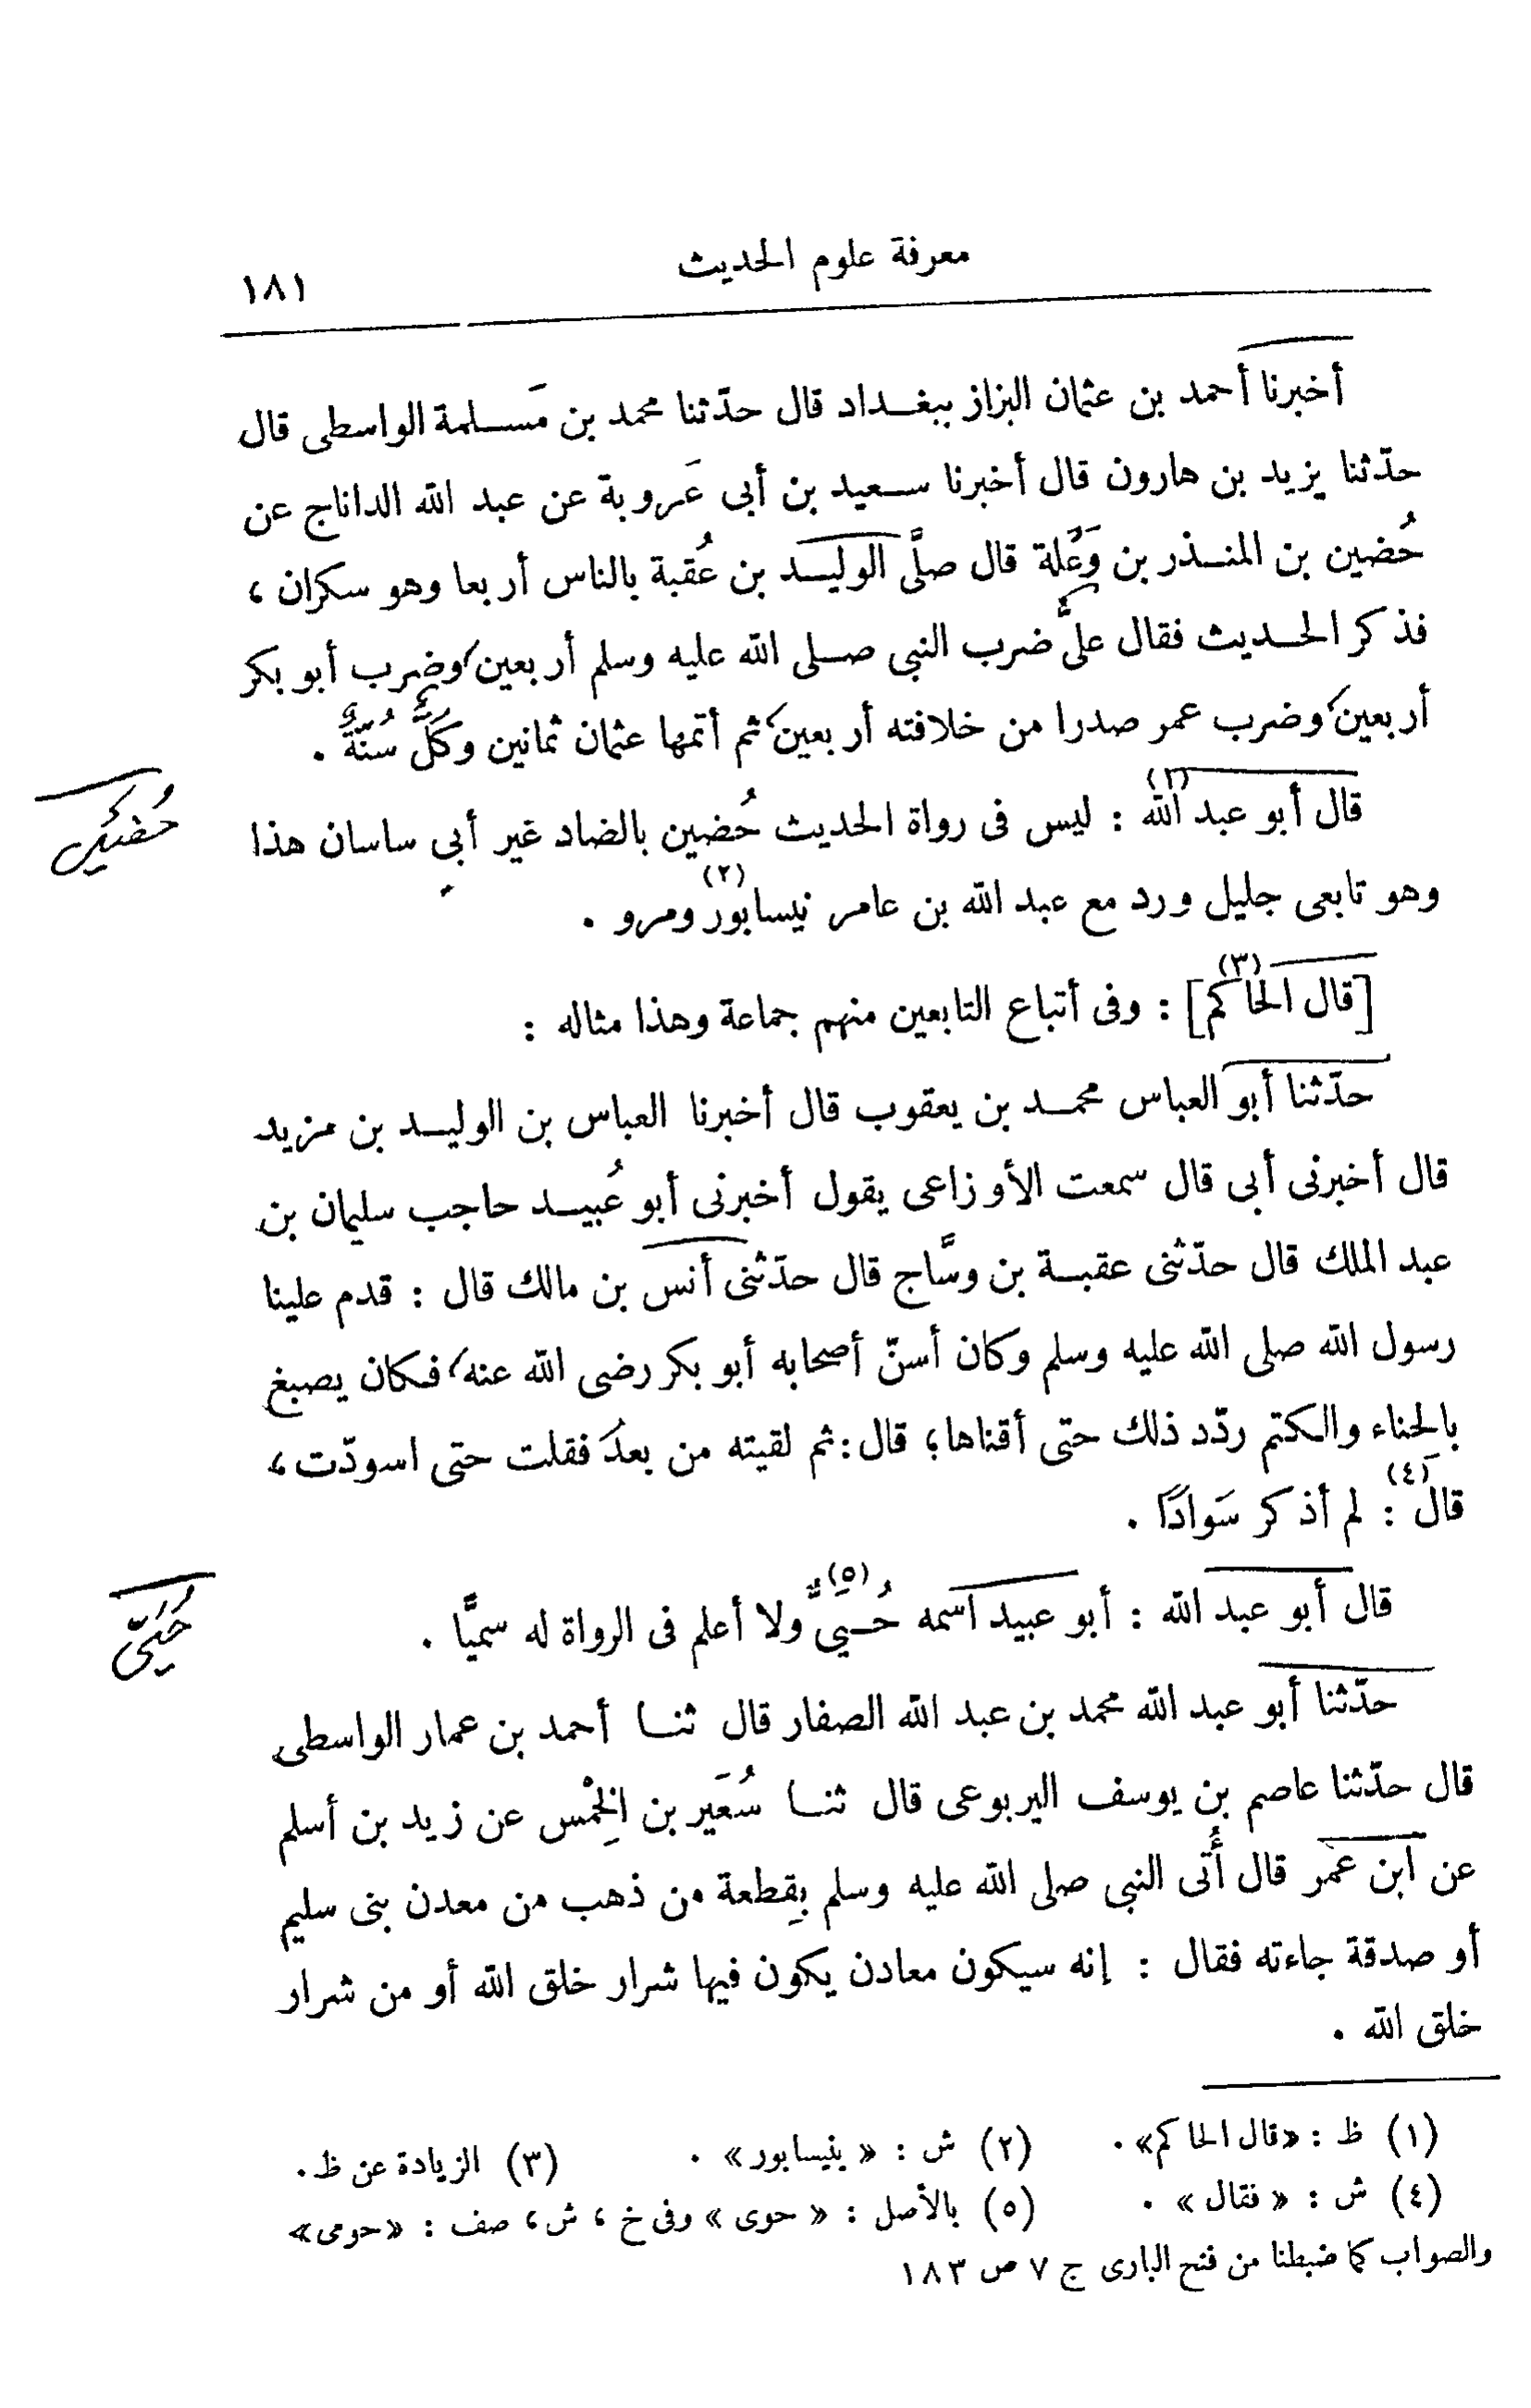 معرفة علوم الحديث
١٨١
أخبرنا أحمد بن عثمان البزاز ببغداد قال حدّثنا محمد بن مَسلمة الواسطى قال
حدّثنا يزيد بن هارون قال أخبرنا سعيد بن أبى عَروبة عن عبد الله الداناج عن
حُضين بن المنذر بن وَعْلة قال صلَّى الوليد بن عُقبة بالناس أربعا وهو سكران ،
فذكر الحديث فقال علىٌّ ضرب النبى صلى الله عليه وسلم أربعين، وضرب أبو بكر
أربعين، وضرب عمر صدرا من خلافته أربعين، ثم أتمها عثمان ثمانين وكلٌّ سُنّةٌ .
قال أبو عبد الله (١) : ليس فى رواة الحديث حُضين بالضاد غير أبي ساسان هذا
حُضين
وهو تابعى جليل ورد مع عبد الله بن عامر نيسابور (٢) ومرو .
[قال الحاكم] (٣) : وفى أتباع التابعين منهم جماعة وهذا مثاله :
حدّثنا أبو العباس محمد بن يعقوب قال أخبرنا العباس بن الوليد بن مزيد
قال أخبرنى أبى قال سمعت الأوزاعى يقول أخبرنى أبو عُبيد حاجب سليمان بن
عبد الملك قال حدّثنى عقبة بن وسَّاج قال حدّثنى أنس بن مالك قال : قدم علينا
رسول الله صلى الله عليه وسلم وكان أسنّ أصحابه أبو بكر رضى الله عنه، فكان يصبغ
بالحِناء والكتم ردّد ذلك حتى أقناها؛ قال : ثم لقيته من بعدُ فقلت حتى اسودّت ،
قال (٤) : لم أذكر سَوادًا .
قال أبو عبد الله : أبو عبيد اسمه حُيَىٌّ (٥) ولا أعلم فى الرواة له سميًّا .
حُيَىّ
حدّثنا أبو عبد الله محمد بن عبد الله الصفار قال ثنا أحمد بن عمار الواسطى
قال حدّثنا عاصم بن يوسف اليربوعى قال ثنا سُعَير بن الخِمْس عن زيد بن أسلم
عن ابن عمر قال أُتى النبى صلى الله عليه وسلم بِقطعة من ذهب من معدن بنى سليم
أو صدقة جاءته فقال : إنه سيكون معادن يكون فيها شرار خلق الله أو من شرار
خلق الله .
(١) ظ : «قال الحاكم» . (٢) ش : « بنيسابور » . (٣) الزيادة عن ظ .
(٤) ش : « فقال » . (٥) بالأصل : « حوى » وفى خ ، ش ، صف : «حومى»
والصواب كما ضبطنا من فتح البارى ج ٧ ص ١٨٣